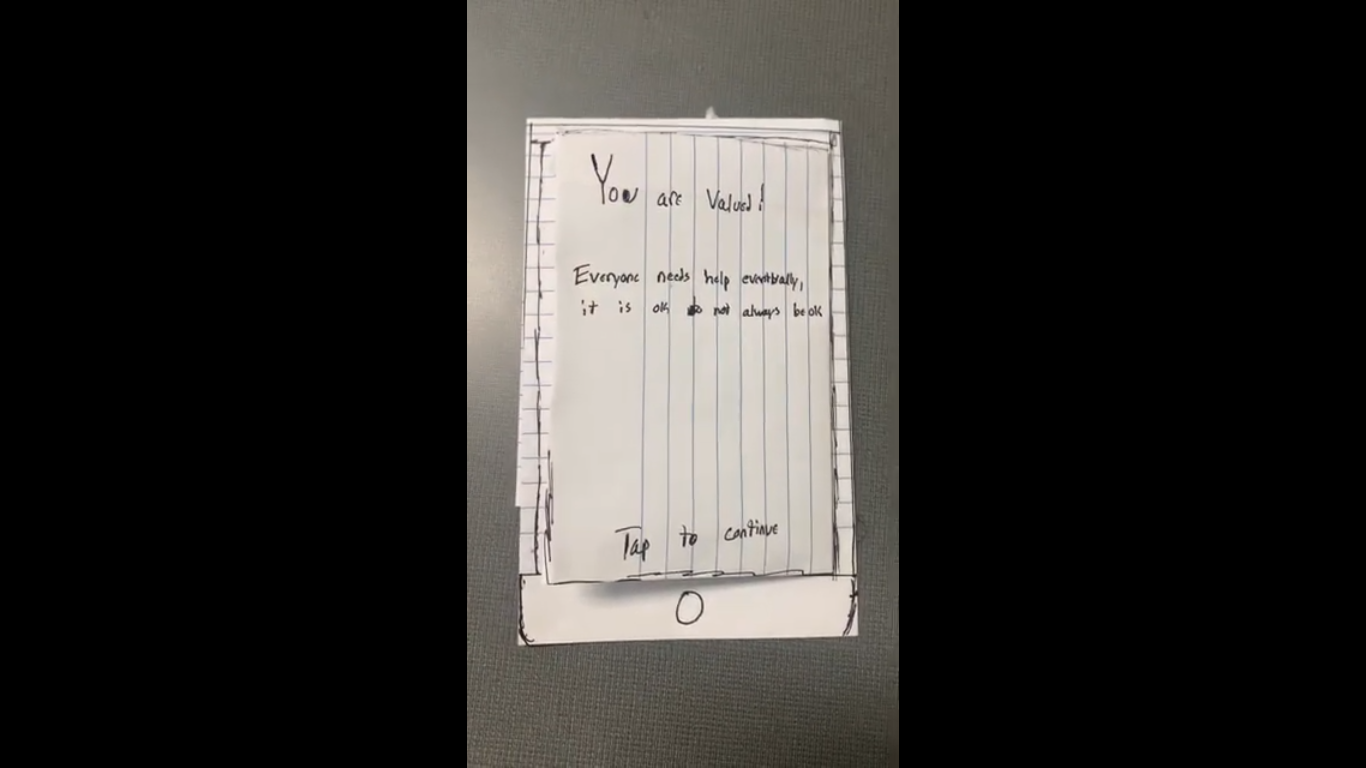 You are Valued!
Everyone needs help eventually,
it is ok to not always be ok
Tap to continue